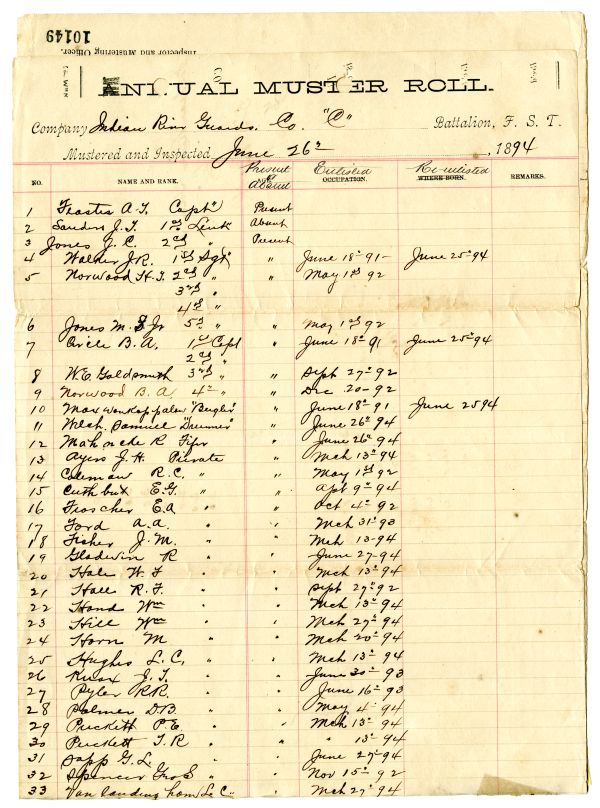 10149
Inspector and Mustering Officer.
ANNUAL MUSTER ROLL.
Company Indian River Guards. Co. "C" Battalion, F. S. T.
Mustered and Inspected June 26th, 1894
NO. NAME AND RANK. Present or Absent Enlisted OCCUPATION. Re-enlisted WHERE BORN. REMARKS.
1 A. T. Capt" Present
2 Sanders J. T. 1st Lieut Absent
3 Jones J. C. 2nd " Present
4 Walker J.R. 1st Sgt " June 18 - 91 - June 25 - 94
5 Norwood H. T. 2nd " " May 1st 92
3rd "
4th "
6 Jones M. S Jr 5th " " May 1st 92
7 Circle B. A. 1st Corpl " June 18th 91 June 25th 94
2nd "
8 W. E. Goldsmith 3rd " " Sept 27th 92
9 Norwood B. A. 4th " " Dec. 20 - 92
10 Max "Bugler" " June 18th 91 June 25 94
11 Welch Samuel "Drummer" " June 26th 94
12 R Fifer " June 26th 94
13 Ayers J. H. Private " Mch 13th 94
14 Coleman R. C. " " May 1st 92
15 Cuthbert E. G. " " Apl 9th 94
16 Froscher E. A " " Oct 4th 92
17 Ford A. A. " " Mch 31st 93
18 Fisher J. M. " " Mch 13 - 94
19 Gladwin R " " June 27 - 94
20 Hale W. F " " Mch 13th 94
21 Hall R. F. " " Sept 27th 92
22 Hand Wm " " Mch 13th 94
23 Hill Wm " " Mch 27th 94
24 Horn M " " Mch 20th 94
25 Hughes L. C. " " Mch 13th 94
26 Knox J. T. " " June 30th 93
27 Pyler R. R. " " June 16th 93
28 Palmer D. B. " " May 4th 94
29 Puckett P. E. " " Mch 13th 94
30 Puckett T. R " " " 13th 94
31 Sapp G. L. " " June 27th 94
32 Spencer Geo E " " Nov 15th 92
33 Van Landingham L. C " " Mch 27th 94